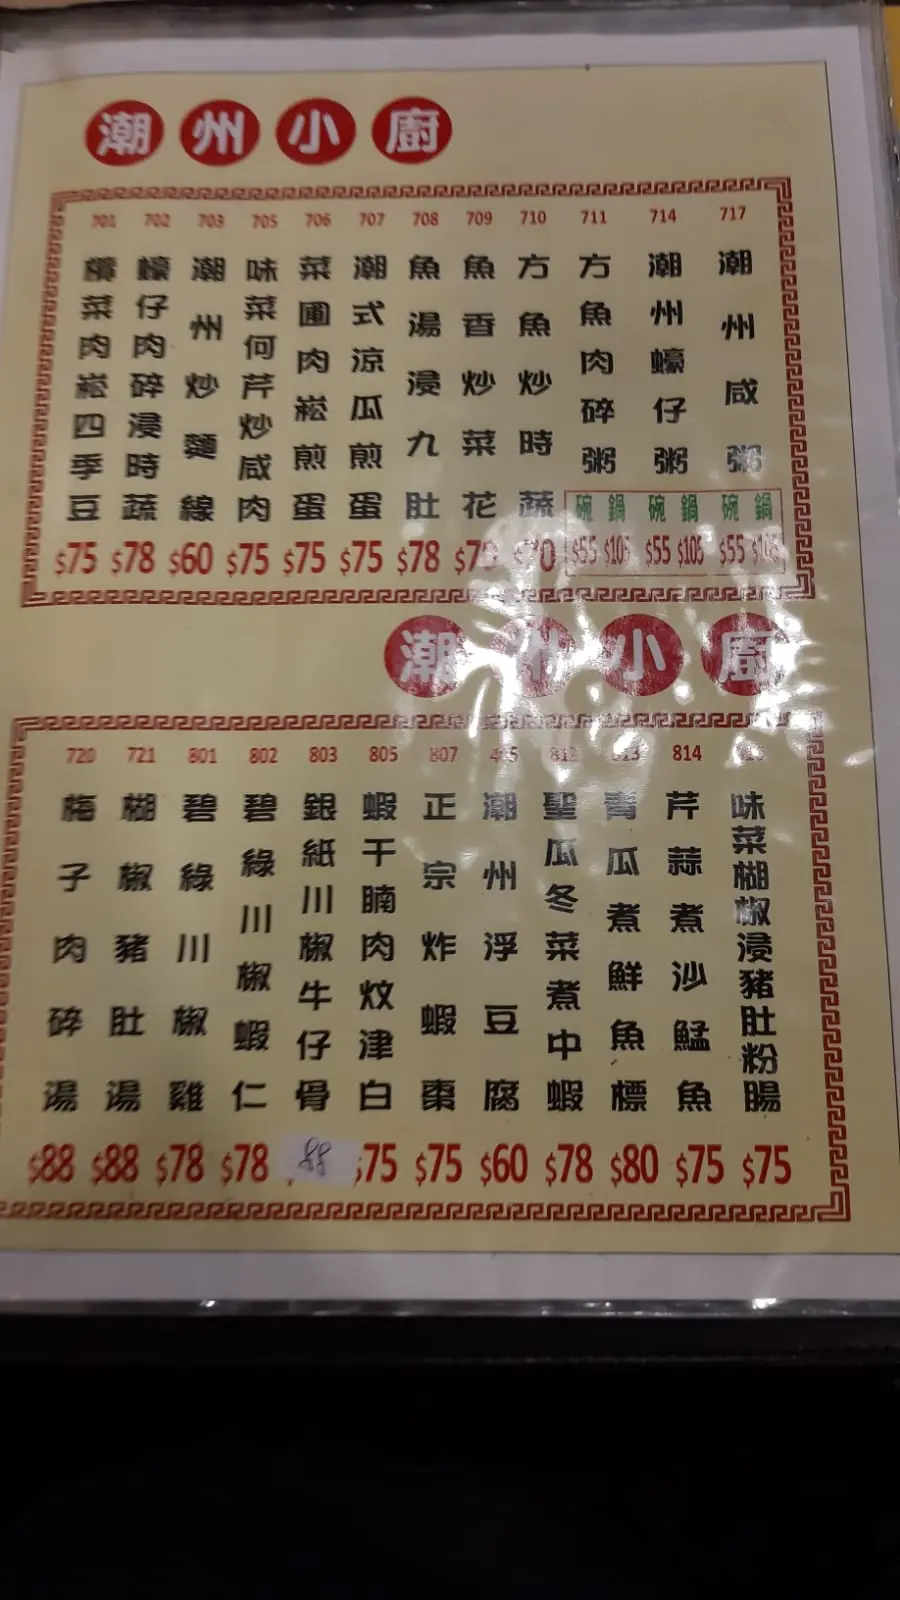 潮州小廚
701 702 703 705 706 707 708 709 710 711 714 717
欖菜肉崧四季豆
蠔仔肉碎浸時蔬
潮州炒麵線
味菜何芹炒咸肉
菜圃肉崧煎蛋
潮式涼瓜煎蛋
魚湯浸九肚
魚香炒菜花
方魚炒時蔬
方魚肉碎粥
潮州蠔仔粥
潮州咸粥
碗 鍋 碗 鍋 碗 鍋
$75 $78 $60 $75 $75 $75 $78 $70 $55 $105 $55 $105 $55
潮州小廚
720 721 801 802 803 805 807 814
梅子肉碎湯
楜椒豬肚湯
碧綠川椒雞
碧綠川椒蝦仁
銀紙川椒牛仔骨
蝦干腩肉炆津白
正宗炸蝦棗
潮州浮豆腐
聖瓜冬菜煮中蝦
青瓜煮鮮魚標
芹蒜煮沙鯭魚
味菜楜椒浸豬肚粉腸
$88 $88 $78 $78 88 $75 $75 $60 $78 $80 $75 $75